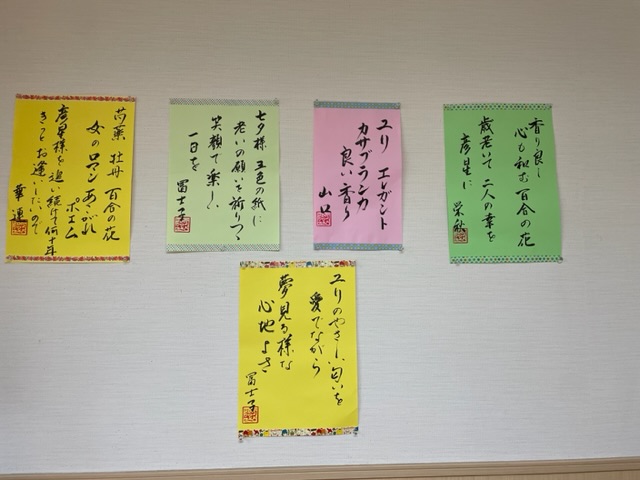 芍薬 牡丹 百合の花
女のロマン あこがれ
ポエム
彦星様を追い続けて何十年
きっとお逢いしたいので
華蓮
七夕様 五色の紙に
老いの願いを祈りつゝ
笑顔で楽しく
一日を
冨士子
ユリ エレガント
カサブランカ
良い香り
山口
香り良し
心も和む百合の花
歳老いて 二人の幸を
彦星に
栄秋
ユリのやさしい匂いを
愛でながら
夢見る様な
心地よさ
冨士子